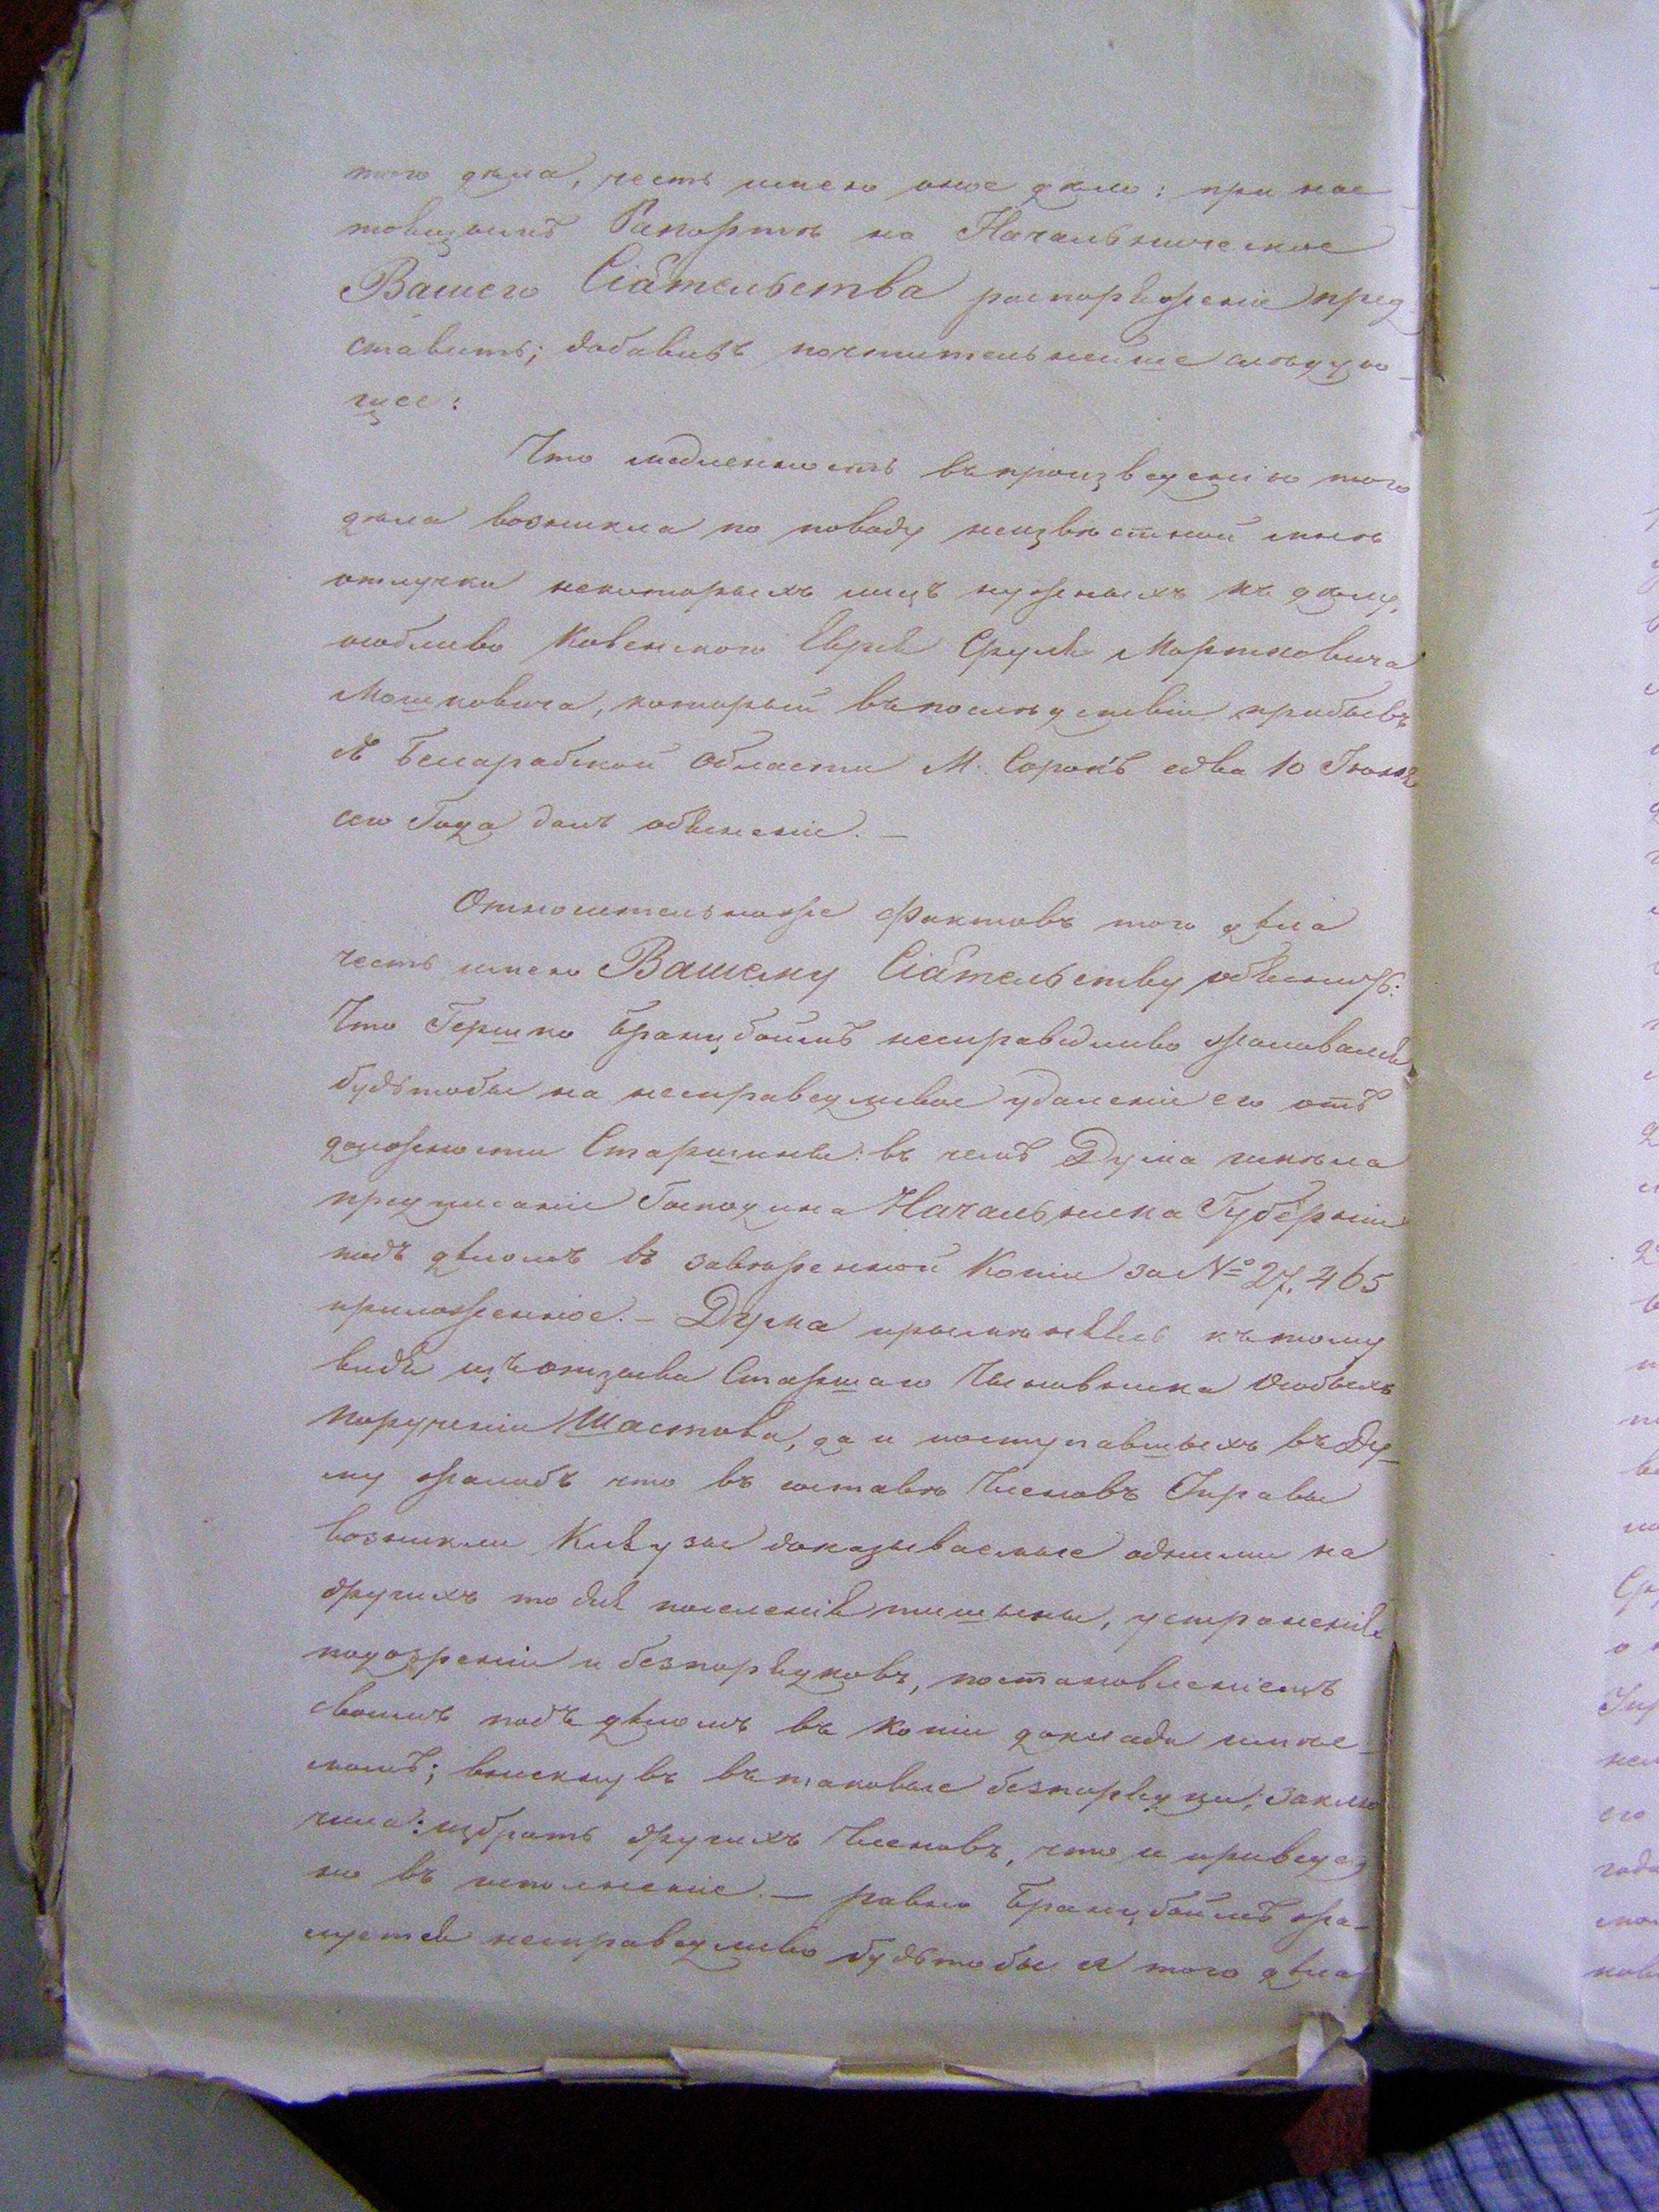 того дѣла, честь имѣю оное дѣло: при нас-
тоящымъ Рапортѣ на Начальническое
Вашего Сіятельства распоряженіе пред
ставить; добавивъ почтительнейше слѣдую-
щее:
Что медленность въ произведенію того
дѣла возникла по поводу неизвѣстной мнѣ
отлучки некоторыхъ лицъ нужныхъ къ дѣлу,
особливо Ковенского Еврея Сруля Мортковича
Мошковича, который въ последствіи прибывъ
къ Бесарабской Области М. Сорокъ едва 10 Іюля
сего Года далъ объясненіе. —
Относительно же Фактовъ того дѣла
честь имѣю Вашему Сіятельству объяснить:
Что Гершко Транцбоймъ несправедливо жаловался
будьтобы на несправедливое удаленіе его отъ
должности Старшины: въ чемъ Дума имѣла
предписаніе Господина Начальника Губерніи
подъ дѣломъ въ завѣренной Копіи за № 27,465
приложенное. — Дума прымѣняясь къ тому
видя изъ отзыва Старшаго Чыновника Особыхъ
Порученіи Шастова, да и поступавшыхъ въ Ду-
му жалобъ что въ составѣ Членовъ Управы
возникли Кляузы доказываемые одними на
другихъ то для поселенія тишыны, устраненія
подозреніи и безпорядковъ, постановленіемъ
своимъ подъ дѣломъ въ копіи доклада имѣе-
мымъ; вникнувъ въ таковые безпорядки, заклю
чила: избрать другихъ Членовъ, что и приведе
но въ исполненіе. — равно Транцбоймъ жа-
луется несправедливо будьтобы я того дѣла